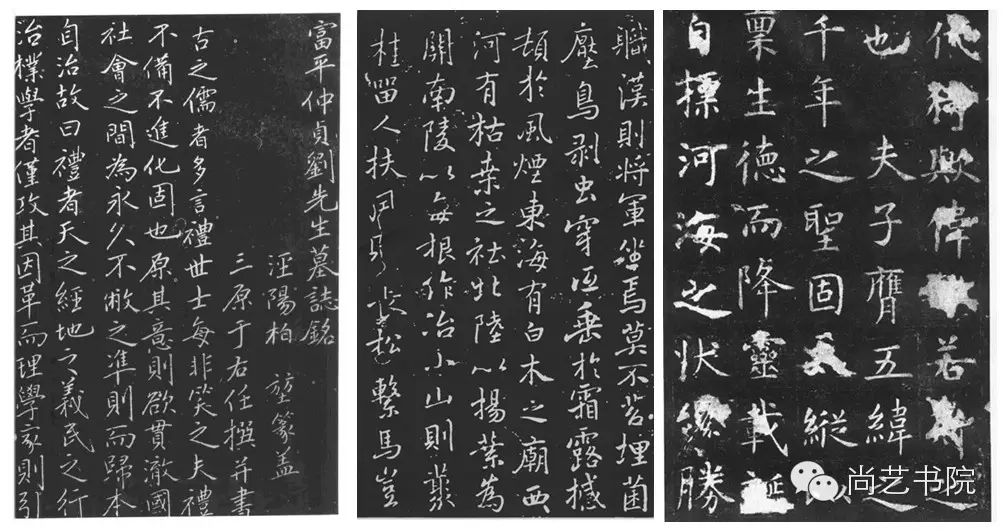 富平仲貞劉先生墓誌銘
涇陽柏 堃篆蓋
三原于右任撰并書
古之儒者多言禮世士每非笑之夫禮
不備不進化固也原其意則欲貫澈國
社會之間為永久不敝之準則而歸本
自治故曰禮者天之經地之義民之行
治樸學者僅攷其因革而理學家則引
職漢則將軍坐焉莫不苔埋菌
壓鳥剥虫穿低垂於霜露撼
頓於風煙東海有白木之廟西
河有枯桒之社北陸以揚葉為
關南陵以每根作冶小山則叢
桂留人扶風則長松繫馬豈
代歟偉若
也 夫子膺五緯
千年之聖固天縱
稟生德而降靈載誕
自摽河海之狀纔勝
尚艺书院